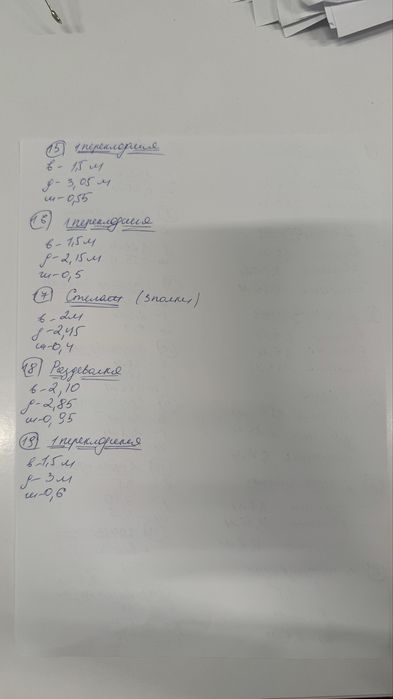 15 1 перекладина
в - 1,5 м
д - 3,05 м
ш - 0,55
16 1 перекладина
в - 1,5 м
д - 2,15 м
ш - 0,5
17 Стелаж (3 полки)
в - 2 м
д - 2,45
ш - 0,4
18 Раздевалка
в - 2,10
д - 2,85
ш - 0,95
19 1 перекладина
в - 1,5 м
д - 3 м
ш - 0,6